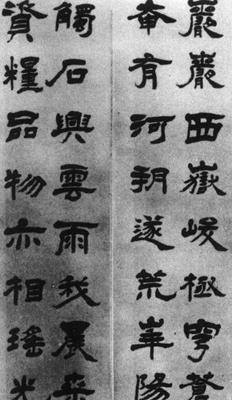 巖巖西嶽峻極穹蒼
奄有河朔遂荒華陽
觸石興雲雨我農桑
資糧品物亦相瑤光